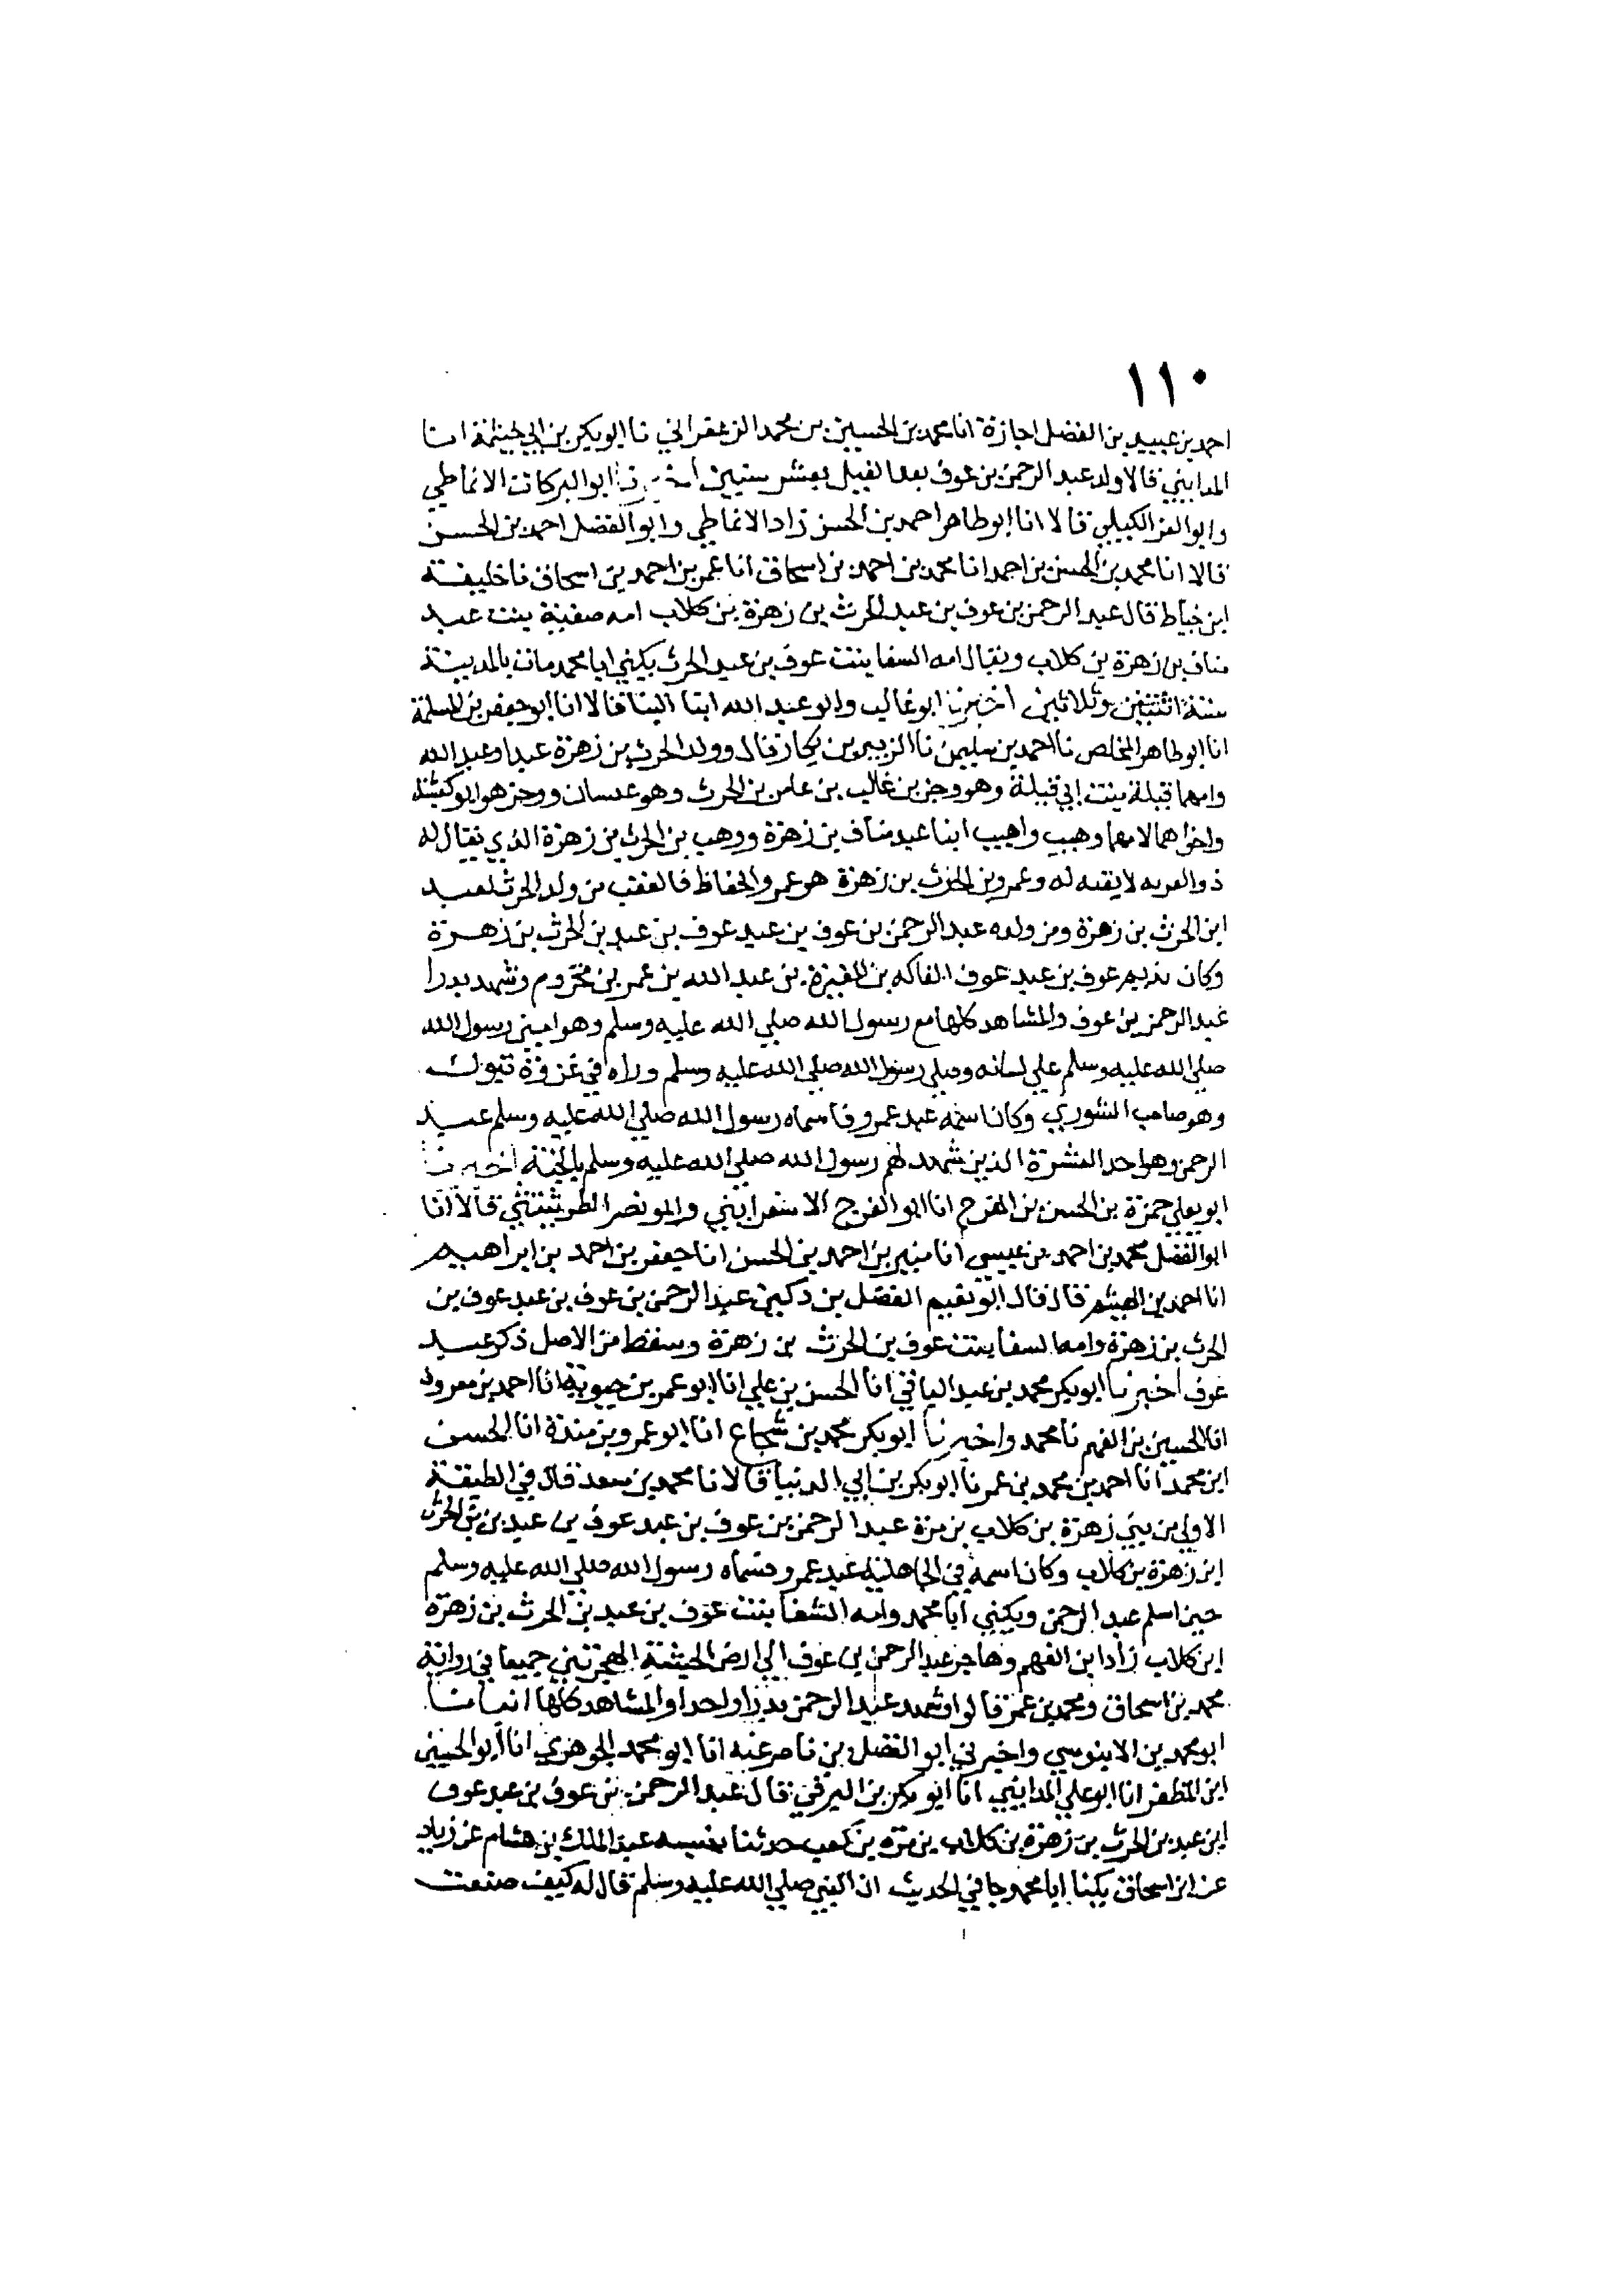 ١١٠
احمد بن عبيد بن الفضل اجازة انا محمد بن الحسين بن محمد الزعفراني نا ابو بكر بن ابي خيثمة انا
المدايني قالا ولد عبد الرحمن بن عوف بعد الفيل بعشر سنين اخبرنا ابو البركات الانماطي
وابو العز الكيلي قالا انا ابو طاهر احمد بن الحسن زاد الانماطي وابو الفضل احمد بن الحسن
قالا انا محمد بن الحسن بن احمد انا محمد بن احمد بن اسحاق انا عمر بن احمد بن اسحاق نا خليفة
ابن خياط قال عبد الرحمن بن عوف بن عبد الحرث بن زهرة بن كلاب امه صفية بنت عبد
مناف بن زهرة بن كلاب ويقال امه الشفا بنت عوف بن عبد الحرث يكنى ابا محمد مات بالمدينة
سنة اثنتين وثلاثين اخبرنا ابو غالب وابو عبد الله ابنا البنا قالا انا ابو جعفر بن المسلمة
انا ابو طاهر المخلص نا احمد بن سليمن نا الزبير بن بكار قال وولد الحرث بن زهرة عبدا وعبد الله
وامهما قيلة بنت ابي قيلة وهو وجز بن غالب بن عامر بن الحرث وهو غبسان ووجز هو ابو كبشة
واخواهما لامهما وهيب واهيب ابنا عبد مناف بن زهرة ووهب بن الحرث بن زهرة الذي يقال له
ذو القريه لا بقيه له وعمرو بن الحرث بن زهرة هو عمرو الحفاظ فالعقب من ولد الحرث لعبد
ابن الحرث بن زهرة ومن ولده عبد الرحمن بن عوف بن عبد عوف بن عبد بن الحرث بن زهرة
وكان نديم عوف بن عبد عوف الفاكه بن المغيرة بن عبد الله بن عمر بن مخزوم وشهد بدرا
عبد الرحمن بن عوف والمشاهد كلها مع رسول الله صلي الله عليه وسلم وهو امين رسول الله
صلي الله عليه وسلم علي نسائه وصلي رسول الله صلي الله عليه وسلم وراه في غزوة تبوك
وهو صاحب الشوري وكان اسمه عبد عمرو فاسماه رسول الله صلي الله عليه وسلم عبد
الرحمن وهو احد العشرة الذين شهد لهم رسول الله صلي الله عليه وسلم بالجنة اخبرنا
ابو يعلي حمزة بن الحسن بن المفرج انا ابو الفرج الاسفرايني وابو نصر الطريثيثي قالا انا
ابو الفضل محمد بن احمد بن عيسي انا منير بن احمد بن الحسن انا جعفر بن احمد بن ابراهيم
انا احمد بن الهيثم قال قال ابو نعيم الفضل بن دكين عبد الرحمن بن عوف بن عبد عوف بن
الحرث بن زهرة وامه الشفا بنت عوف بن الحرث بن زهرة وسقط من الاصل ذكر عبد
عوف اخبرنا ابو بكر محمد بن عبد الباقي انا الحسن بن علي انا ابو عمر بن حيوية انا احمد بن معروف
انا الحسين بن الفهم نا محمد واخبرنا ابو بكر محمد بن شجاع انا ابو عمرو بن مندة انا الحسن
ابن محمد انا احمد بن محمد بن عمر نا ابو بكر بن ابي الدنيا قالا نا محمد بن سعد قال في الطبقة
الاولي من بني زهرة بن كلاب بن مرة عبد الرحمن بن عوف بن عبد عوف بن عبد بن الحرث
ابن زهرة بن كلاب وكان اسمه في الجاهلية عبد عمرو فسماه رسول الله صلي الله عليه وسلم
حين اسلم عبد الرحمن ويكني ابا محمد وامه الشفا بنت عوف بن عبد بن الحرث بن زهرة
ابن كلاب زاد ابن الفهم وهاجر عبد الرحمن بن عوف الي ارض الحبشة الهجرتين جميعا في رواية
محمد بن اسحاق ومحمد بن عمر قالوا وشهد عبد الرحمن بدرا واحدا والمشاهد كلها انبانا
ابو محمد بن الابنوسي واخبرني ابو الفضل بن ناصر عنه انا ابو محمد الجوهري انا ابو الحسين
ابن المظفر انا ابو علي المدايني انا ابو بكر بن البرقي قال عبد الرحمن بن عوف بن عبد عوف
ابن عبد بن الحرث بن زهرة بن كلاب بن مرة بن كعب حدثنا بنسبه عبد الملك بن هشام عن زياد
عن ابن اسحاق يكنا ابا محمد جا في الحديث ان النبي صلي الله عليه وسلم قال له كيف صنعت